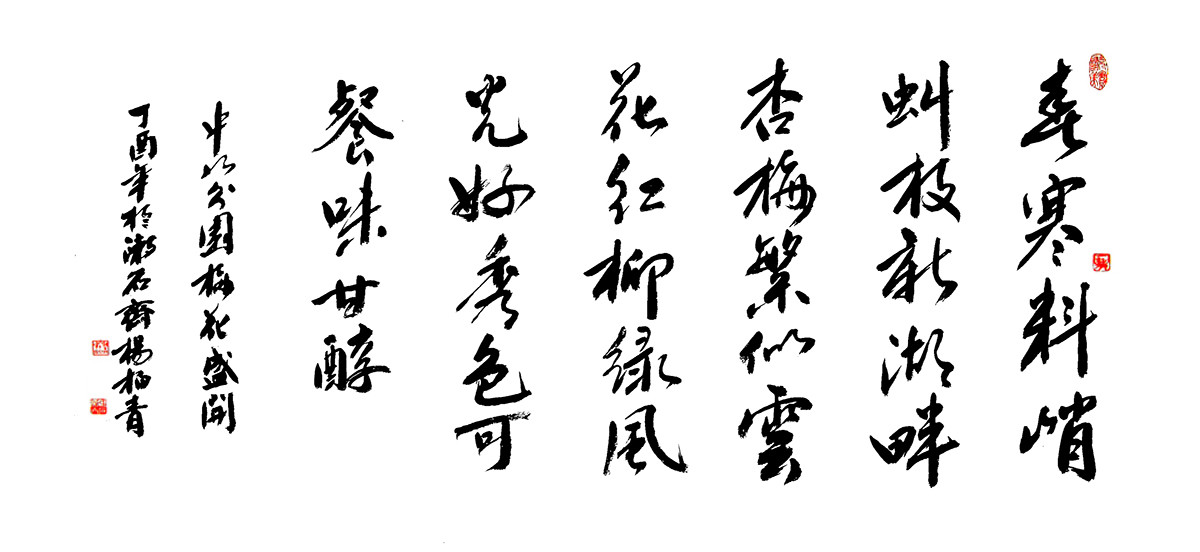 春寒料峭
虯枝新湖畔
杏梅繁似雲
花红柳绿風
光好秀色可
餐味甘醇
中山公園梅花盛開
丁酉年於漱石齋楊柏青